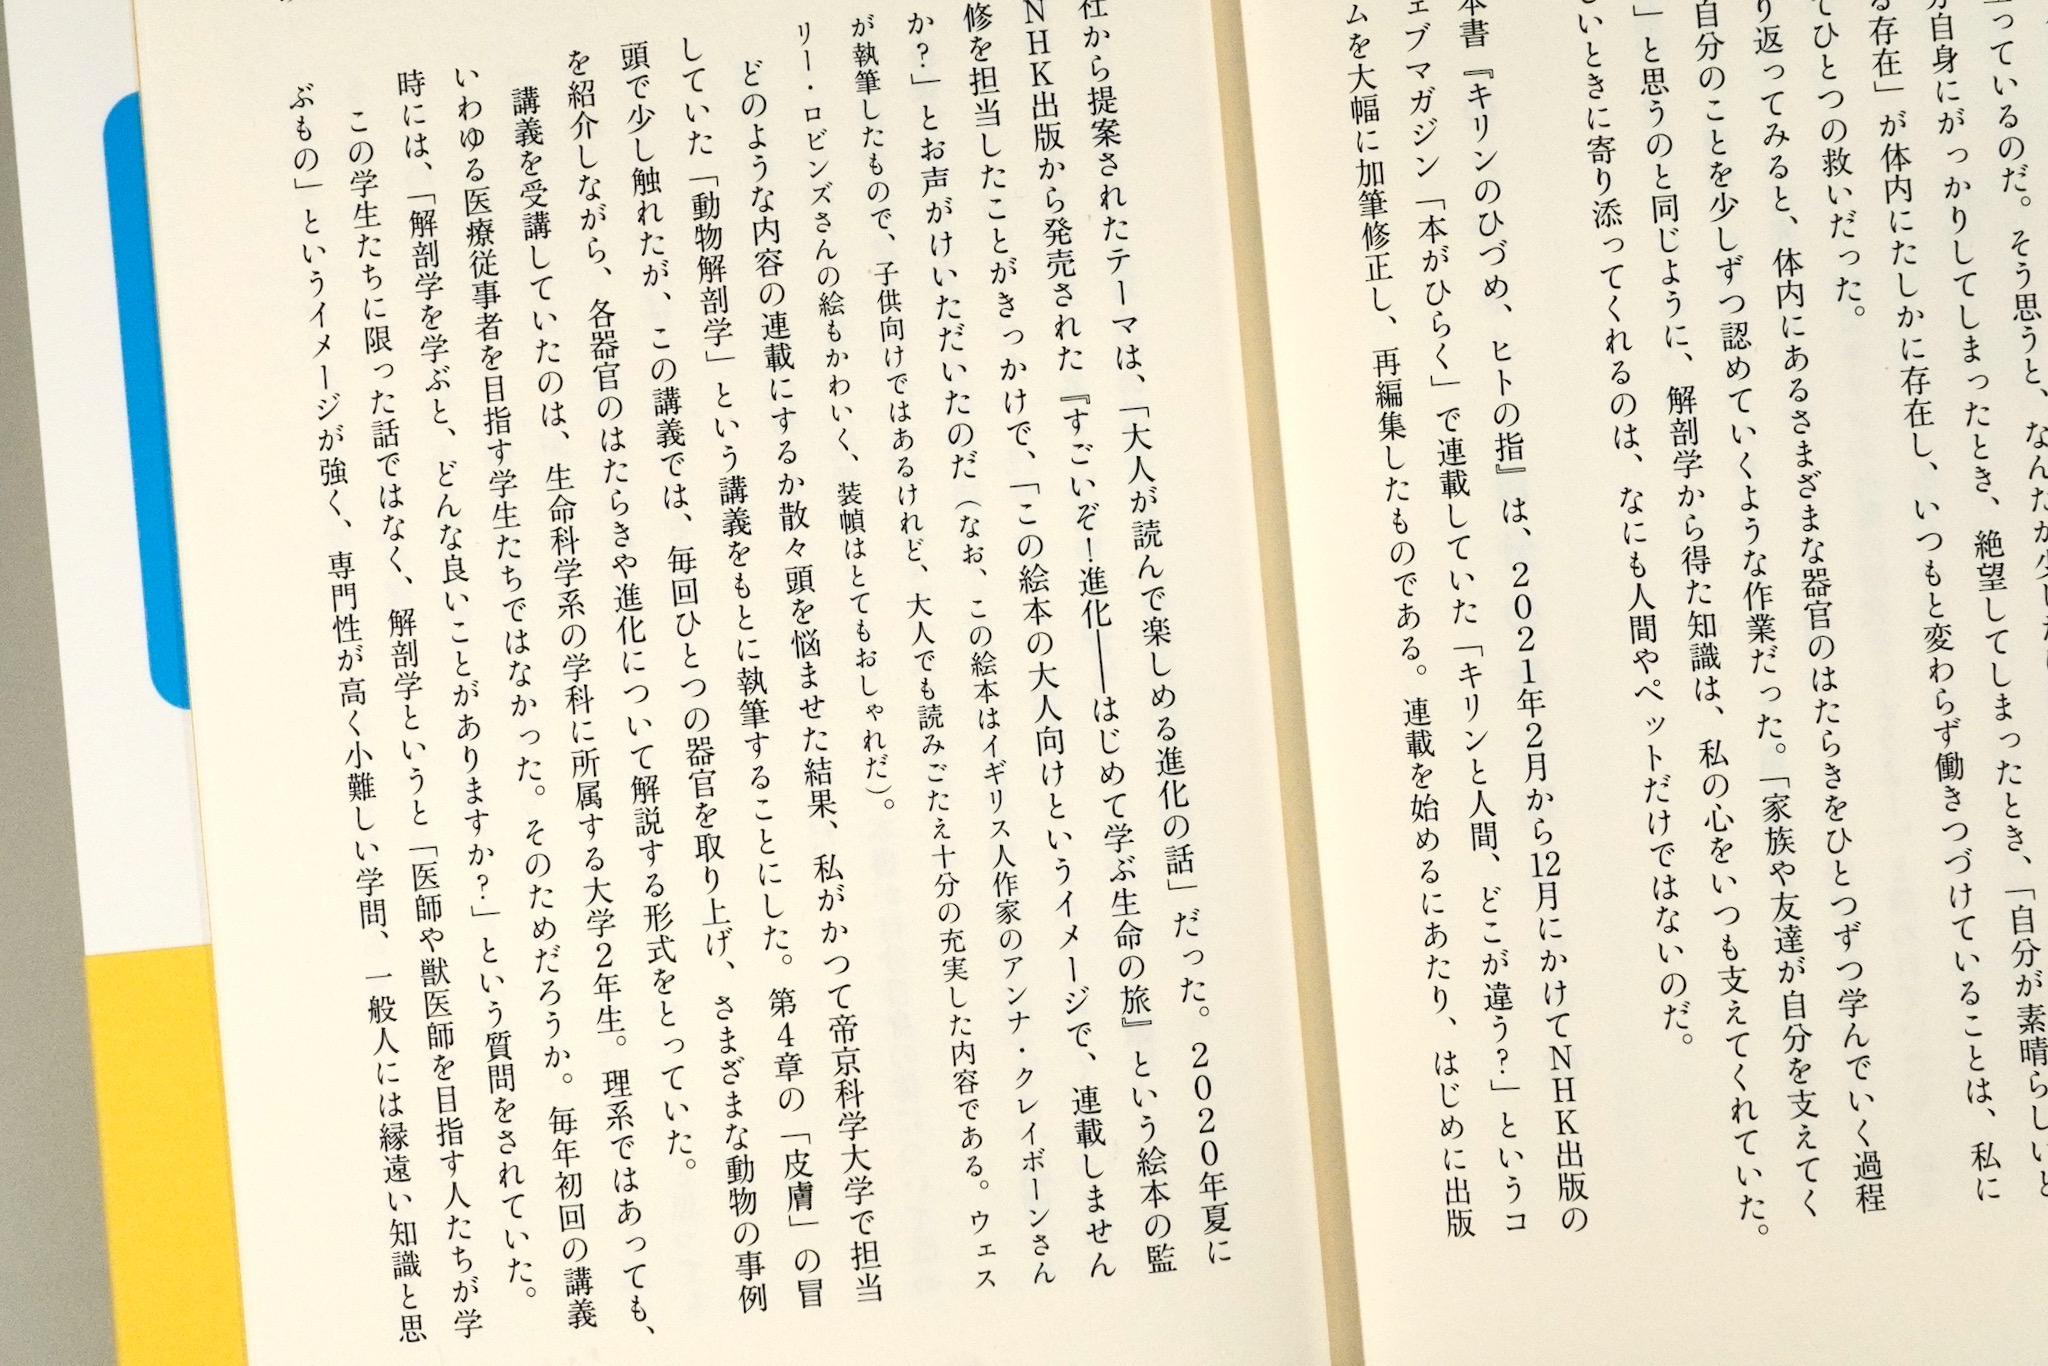 っているのだ。そう思うと、なんだか少し
自身にがっかりしてしまったとき、絶望してしまったとき、「自分が素晴らしい
る存在」が体内にたしかに存在し、いつもと変わらず働きつづけていることは、私に
てひとつの救いだった。
り返ってみると、体内にあるさまざまな器官のはたらきをひとつずつ学んでいく過程
自分のことを少しずつ認めていくような作業だった。「家族や友達が自分を支えてく
」と思うのと同じように、解剖学から得た知識は、私の心をいつも支えてくれていた。
しいときに寄り添ってくれるのは、なにも人間やペットだけではないのだ。
本書『キリンのひづめ、ヒトの指』は、2021年2月から12月にかけてNHK出版の
ェブマガジン「本がひらく」で連載していた「キリンと人間、どこが違う?」というコ
ムを大幅に加筆修正し、再編集したものである。連載を始めるにあたり、はじめに出版
社から提案されたテーマは、「大人が読んで楽しめる進化の話」だった。2020年夏に
NHK出版から発売された『すごいぞ!進化――はじめて学ぶ生命の旅』という絵本の監
修を担当したことがきっかけで、「この絵本の大人向けというイメージで、連載しません
か?」とお声がけいただいたのだ(なお、この絵本はイギリス人作家のアンナ・クレイボーンさん
が執筆したもので、子供向けではあるけれど、大人でも読みごたえ十分の充実した内容である。ウェス
リー・ロビンズさんの絵もかわいく、装幀はとてもおしゃれだ)。
どのような内容の連載にするか散々頭を悩ませた結果、私がかつて帝京科学大学で担当
していた「動物解剖学」という講義をもとに執筆することにした。第4章の「皮膚」の冒
頭で少し触れたが、この講義では、毎回ひとつの器官を取り上げ、さまざまな動物の事例
を紹介しながら、各器官のはたらきや進化について解説する形式をとっていた。
講義を受講していたのは、生命科学系の学科に所属する大学2年生。理系ではあっても、
いわゆる医療従事者を目指す学生たちではなかった。そのためだろうか。毎年初回の講義
時には、「解剖学を学ぶと、どんな良いことがありますか?」という質問をされていた。
この学生たちに限った話ではなく、解剖学というと「医師や獣医師を目指す人たちが学
ぶもの」というイメージが強く、専門性が高く小難しい学問、一般人には縁遠い知識と思